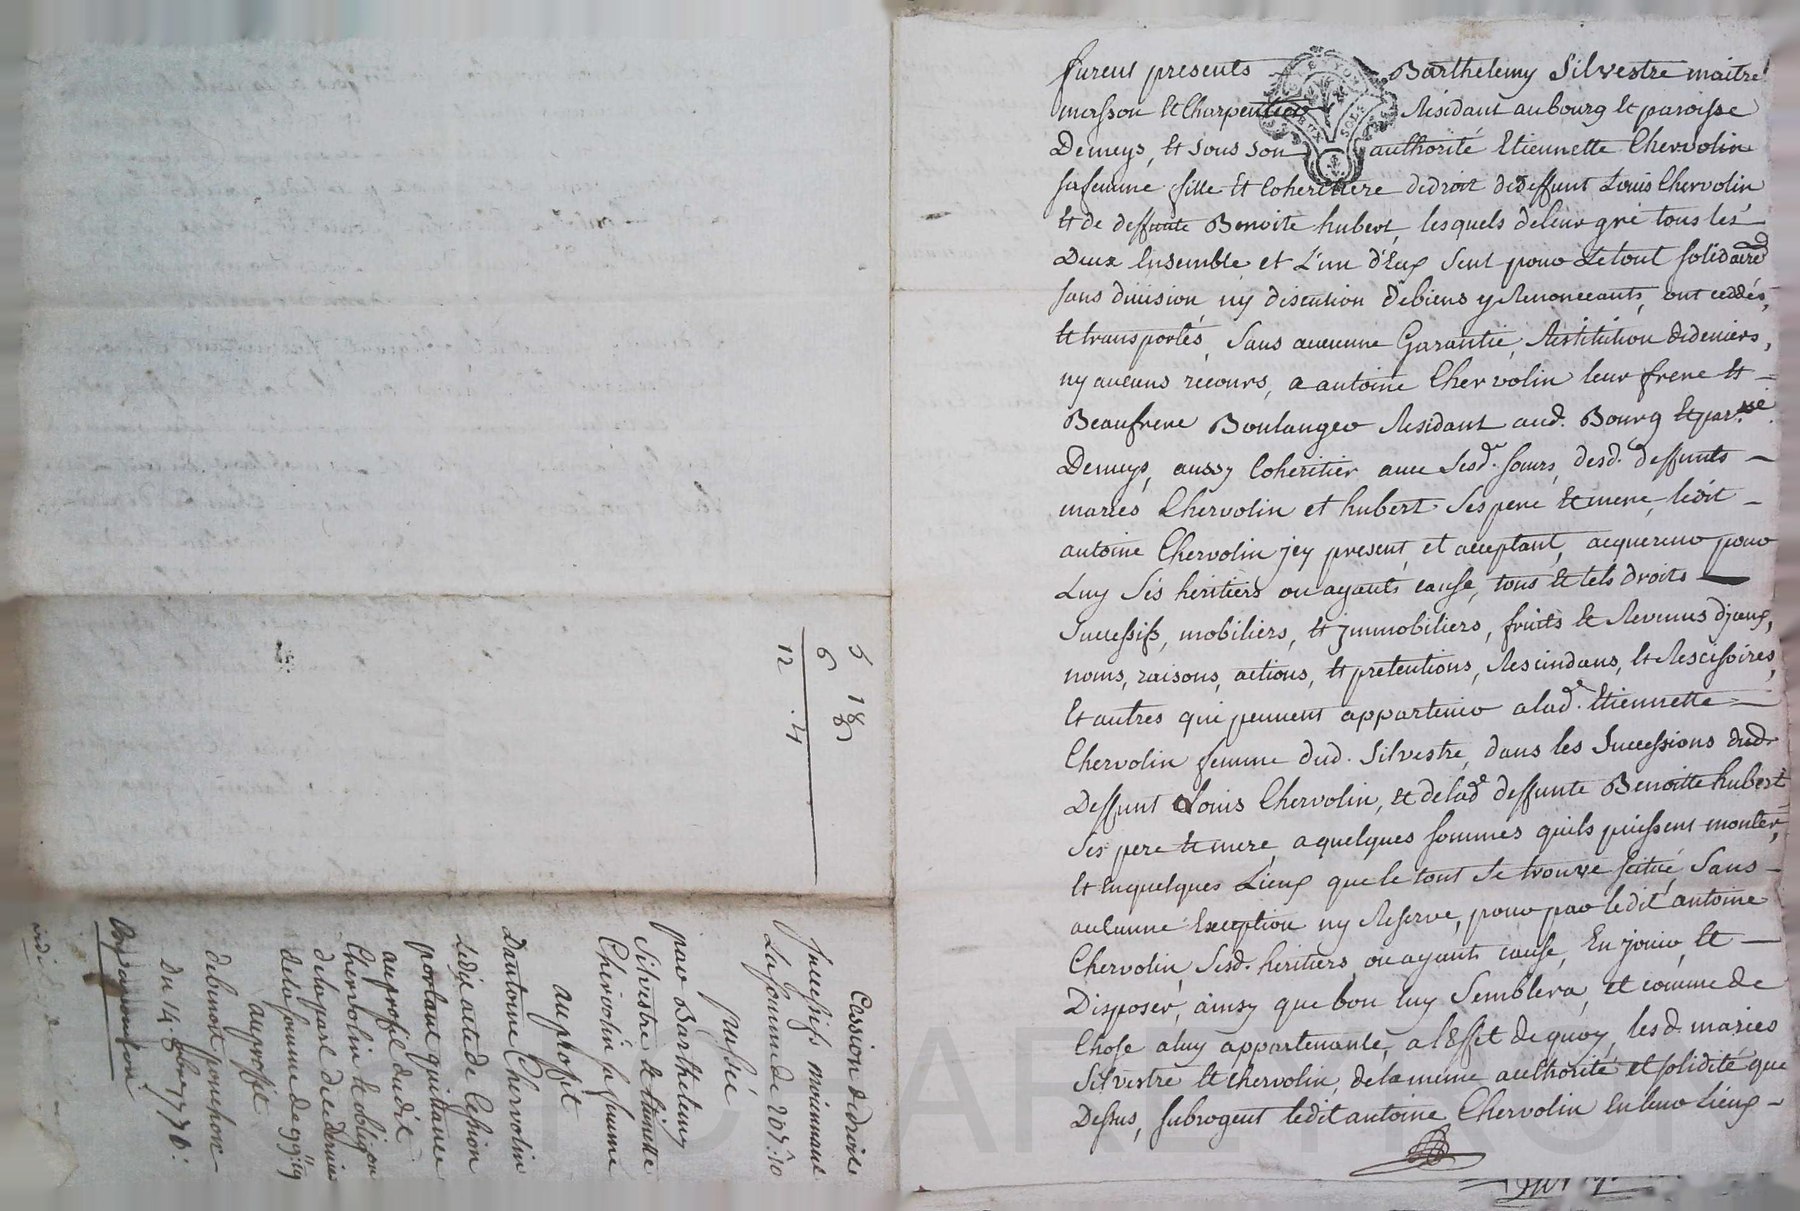 furent presents Barthelemy Silvestre maitre
masson et Charpentier Residant au bourg et paroisse
Demeys, et sous son authorité Etiennette Chervolin
sa femme fille et Coheritiere de droit de deffunt Louis Chervolin
et de deffunte Benoite hubert, lesquels de leur gré tous les
Deux Ensemble et L'un d'Eux Seul pour Le tout solidaire
sans division ny discution de biens y Renonceants, ont ceddés,
et transportés, Sans aucunne Garantie, Restitution de deniers,
ny aucuns recours, a antoine Chervolin leur frere et
Beaufrere Boulanger Residant aud. Bourg et par.sse
Demeys, aussy Coheritier avec Sesd. sœurs, desd. deffunts
mariés Chervolin et hubert Ses pere et mere, ledit
antoine Chervolin jcy present, et acceptant, acquereur pour
Luy Ses heritiers ou ayants cause, tous et tels droits
Successifs, mobiliers, et jmmobiliers, fruits et Revenus djceux,
noms, raisons, actions, et pretentions, Rescindans, et Rescisoires,
Et autres qui peuvent appartenir a lad.e Etiennette
Chervolin femme dud. Silvestre, dans les Successions dud.
Deffunt Louis Chervolin, et de lad.e deffunte Benoitte hubert
Ses pere et mere, a quelques sommes quils puissent monter,
Et En quelques Lieux que le tout Se trouve scitué, Sans
aucunne Exception ny Reserve, pour par ledit antoine
Chervolin, Sesd. heritiers, ou ayants cause, En jouir, et
Disposer, ainsy que bon luy Semblera, et comme de
Chose a luy appartenante, a l'Effet de quoy, lesd. mariés
Silvestre et Chervolin, de la meme authorité et solidité que
Dessus, subrogent ledit antoine Chervolin En leur Lieux
6 18
6
12 . 4
Cession de droits
Successifs moiennant
La somme de 207.10
passée
par Barthelemy
Silvestre et
Chervolin sa femme
au proffit
D'antoine Chervolin
Ledit acte de Cession
portant quittance
au proffit dudit
Chervolin et obligaon
de la part de ce dernier
de la somme de
au proffit
de benoit ponchon
Du 14 8bre 1776.